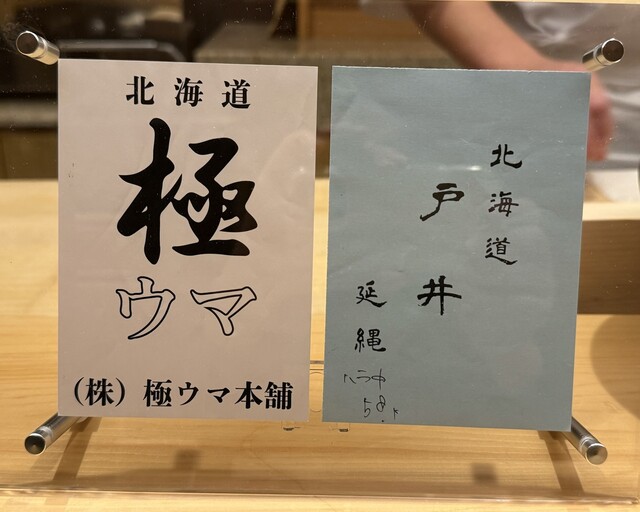 北海道
極
ウマ
(株)極ウマ本舗
北海道
戸井
延縄
ハラ中